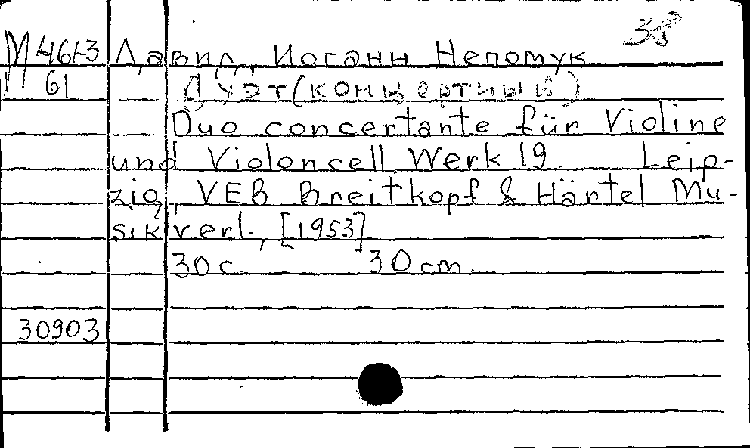 38
М 46-3 Давид, Иоганн Непомук
61 Дуэт (концертный)
Duo concertante für Violine
und Violoncell Werk 19. Leip-
zig, VEB Breitkopf & Härtel Mu-
sikverl., [1953]
30 с. 30 cm
30903